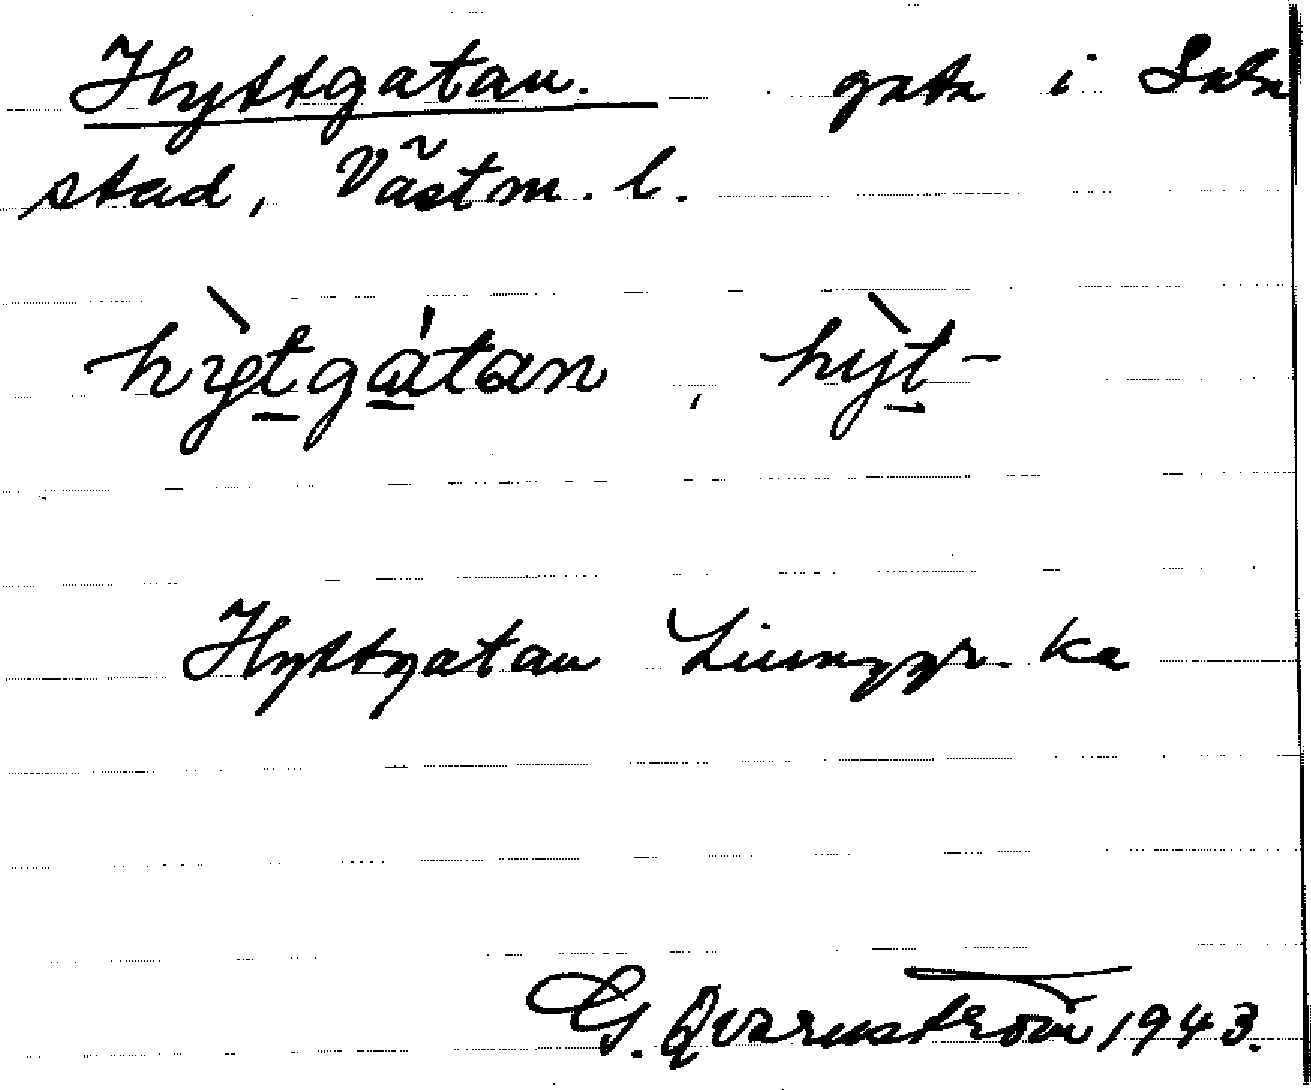 Hyttgatan. gata i Sala
stad, Västm. l.
hỳt̠gá̠tan, hỳt̠-
Hyttgatan Ljunggr. ka
G. Qvarnström 1943.